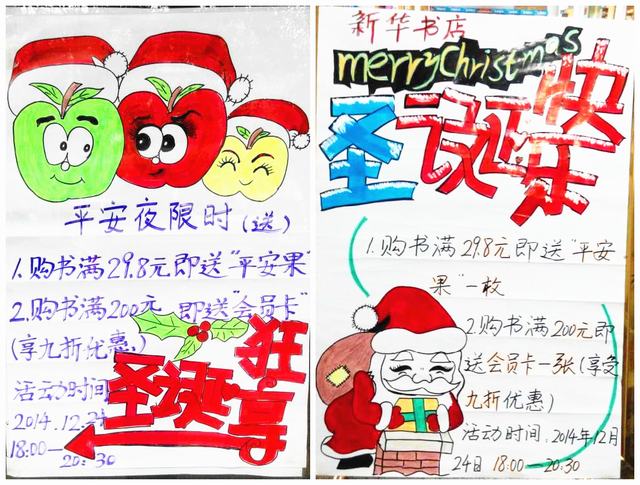 平安夜限时(送)
1.购书满29.8元即送"平安果"
2.购书满200元 即送"会员卡"
(享九折优惠)
活动时间
2014.12.24
18:00—
20:30
圣诞狂享
新华书店
merry Christmas
圣诞快乐
1.购书满29.8元即送"平安
果"一枚
2.购书满200元即
送会员卡一张(享受
九折优惠)
活动时间:2014年12月
24日 18:00—20:30